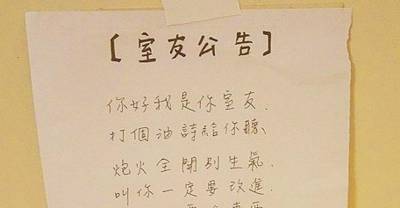 【室友公告】
你好我是你室友.
打個油詩給你聽、
炮火全開別生氣.
叫你一定要改進.